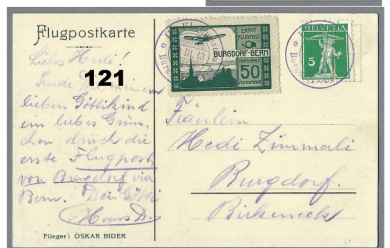 Flugpostkarte
121
Liebes Hedi!
Sende
lieben Göttikind
ein liebes
durch die
erste Flugpost
von Burgdorf via
Bern. Dein Götti
Hans D.
Flieger: OSKAR BIDER
ERSTE
FLUGPOST
BURGDORF-BERN
50
HELVETIA
5
Fräulein
Hedi Zimmerli
Burgdorf.